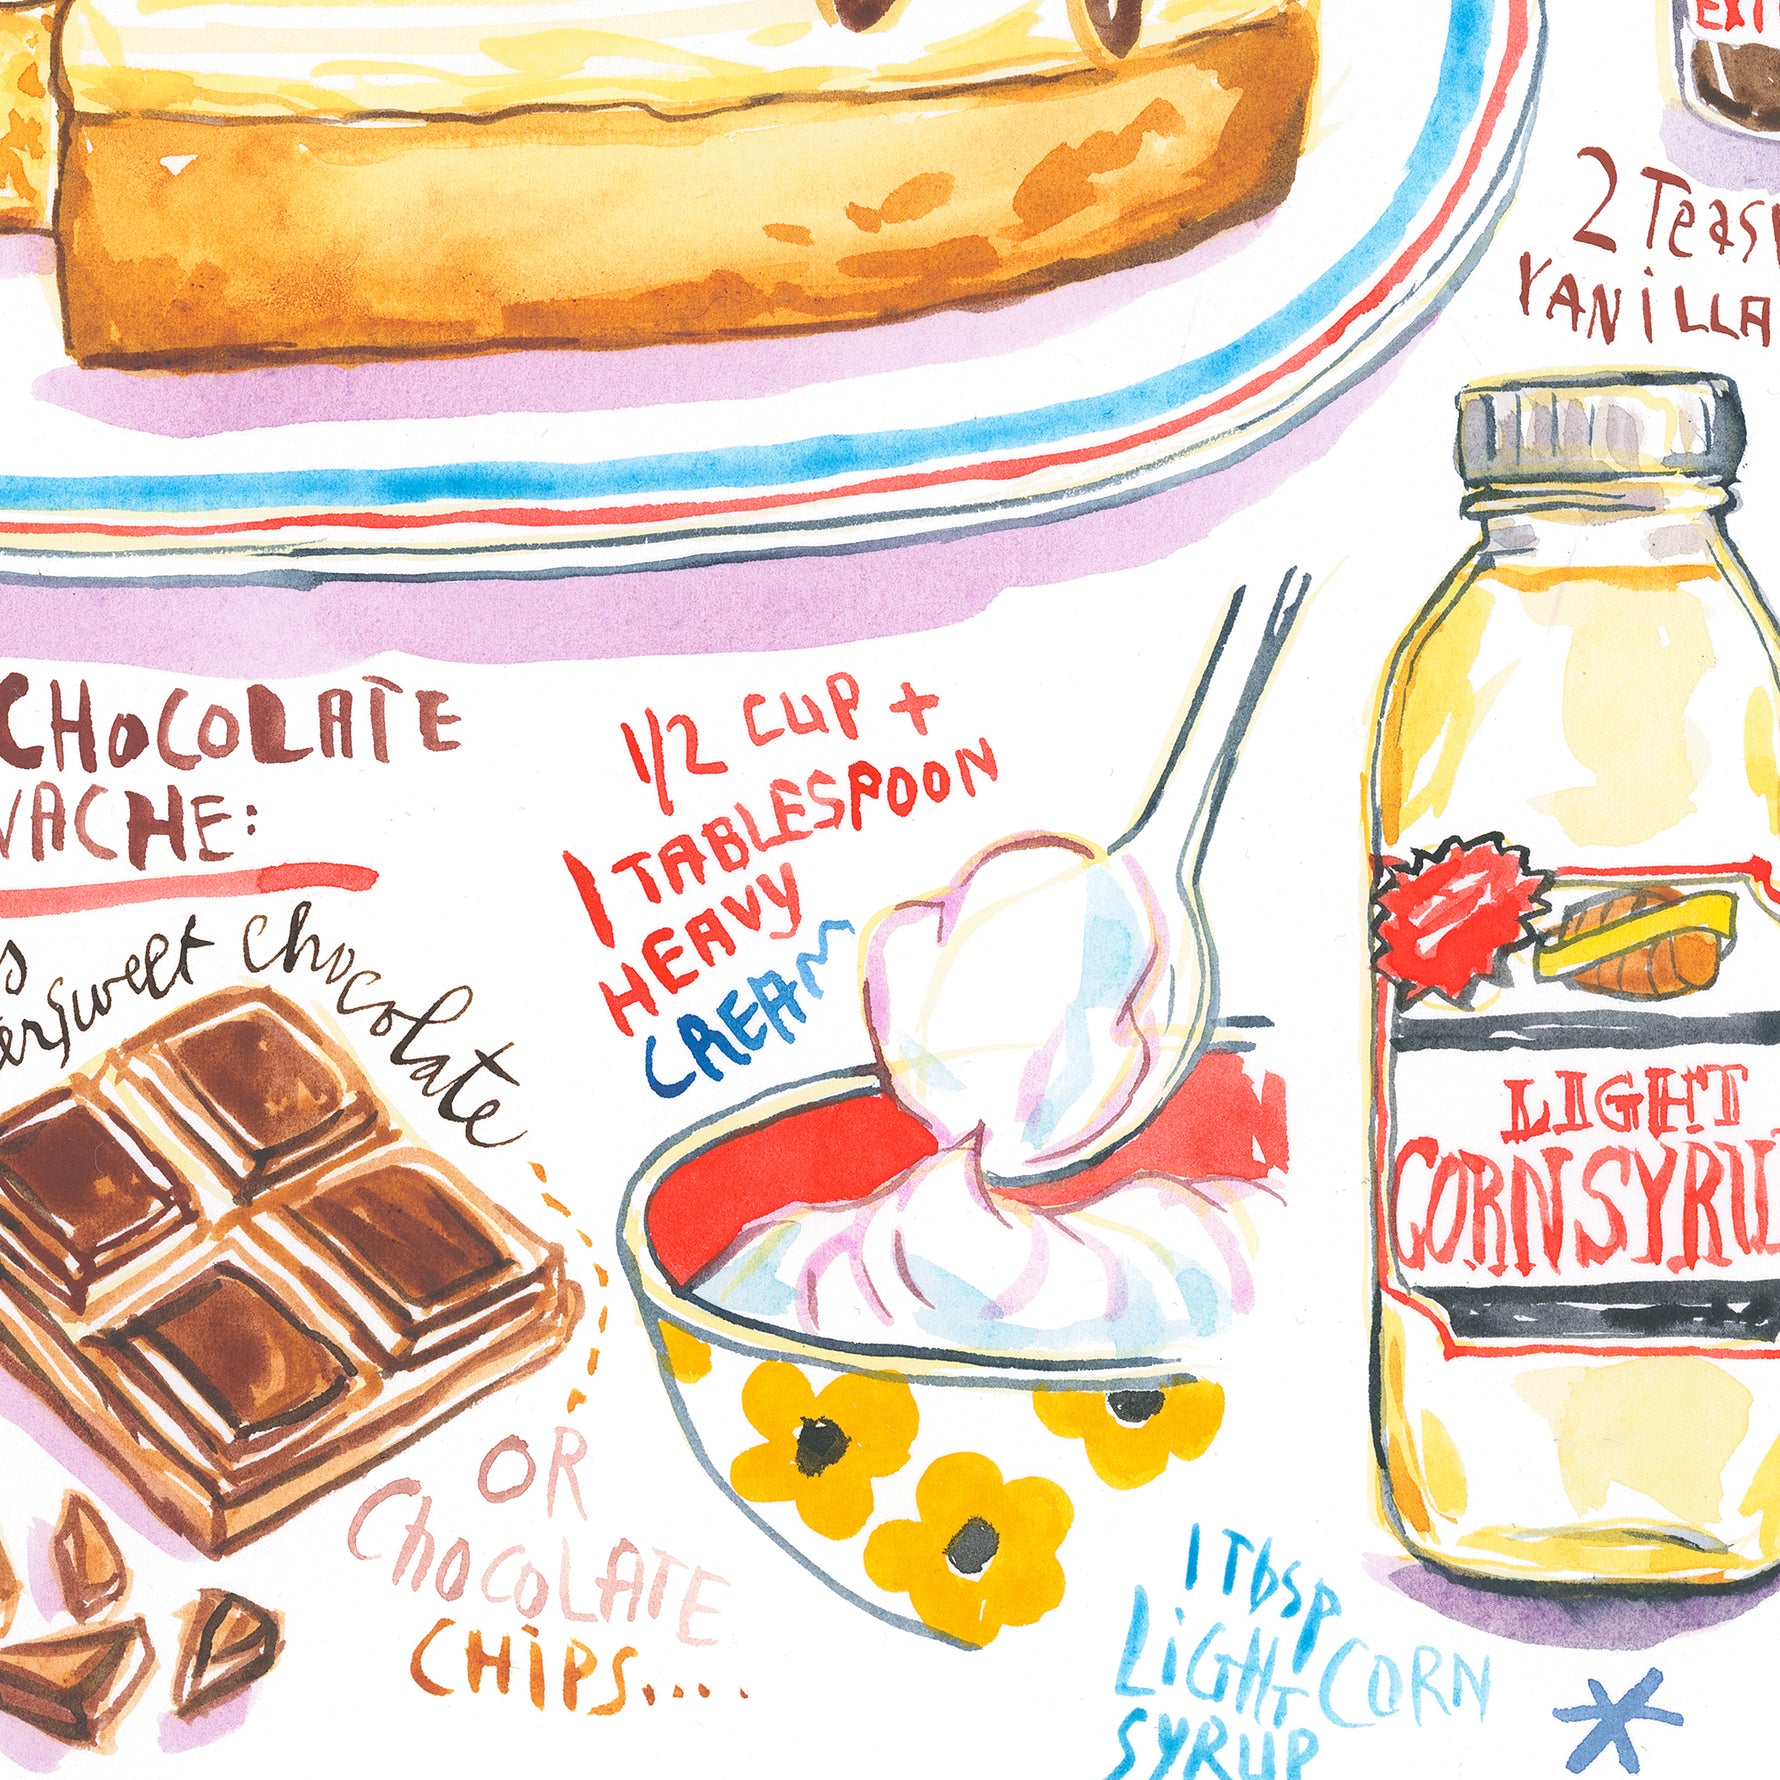 2 Teas
VANILLA
CHOCOLATE
1/2 CUP +
1 TABLESPOON
HEAVY
CREAM
chocolate
LIGHT
CORN SYRU
OR
CHOCOLATE
CHIPS....
1 Tbsp
LiGHT CORN
SYRUP
*